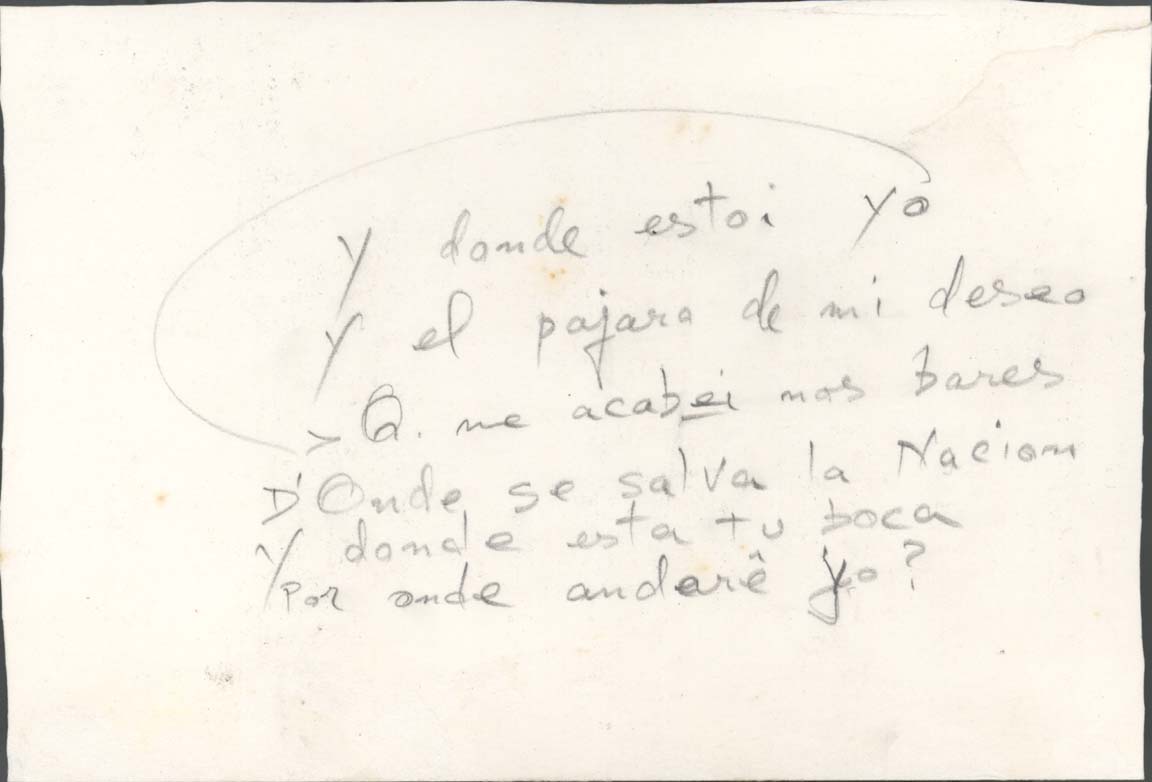 Y donde estoi yo
Y el pajaro de mi deseo
Q. me acabei nos bares
D'Onde se salva la Nacion
Y donde esta tu boca
Por onde andarê yo?